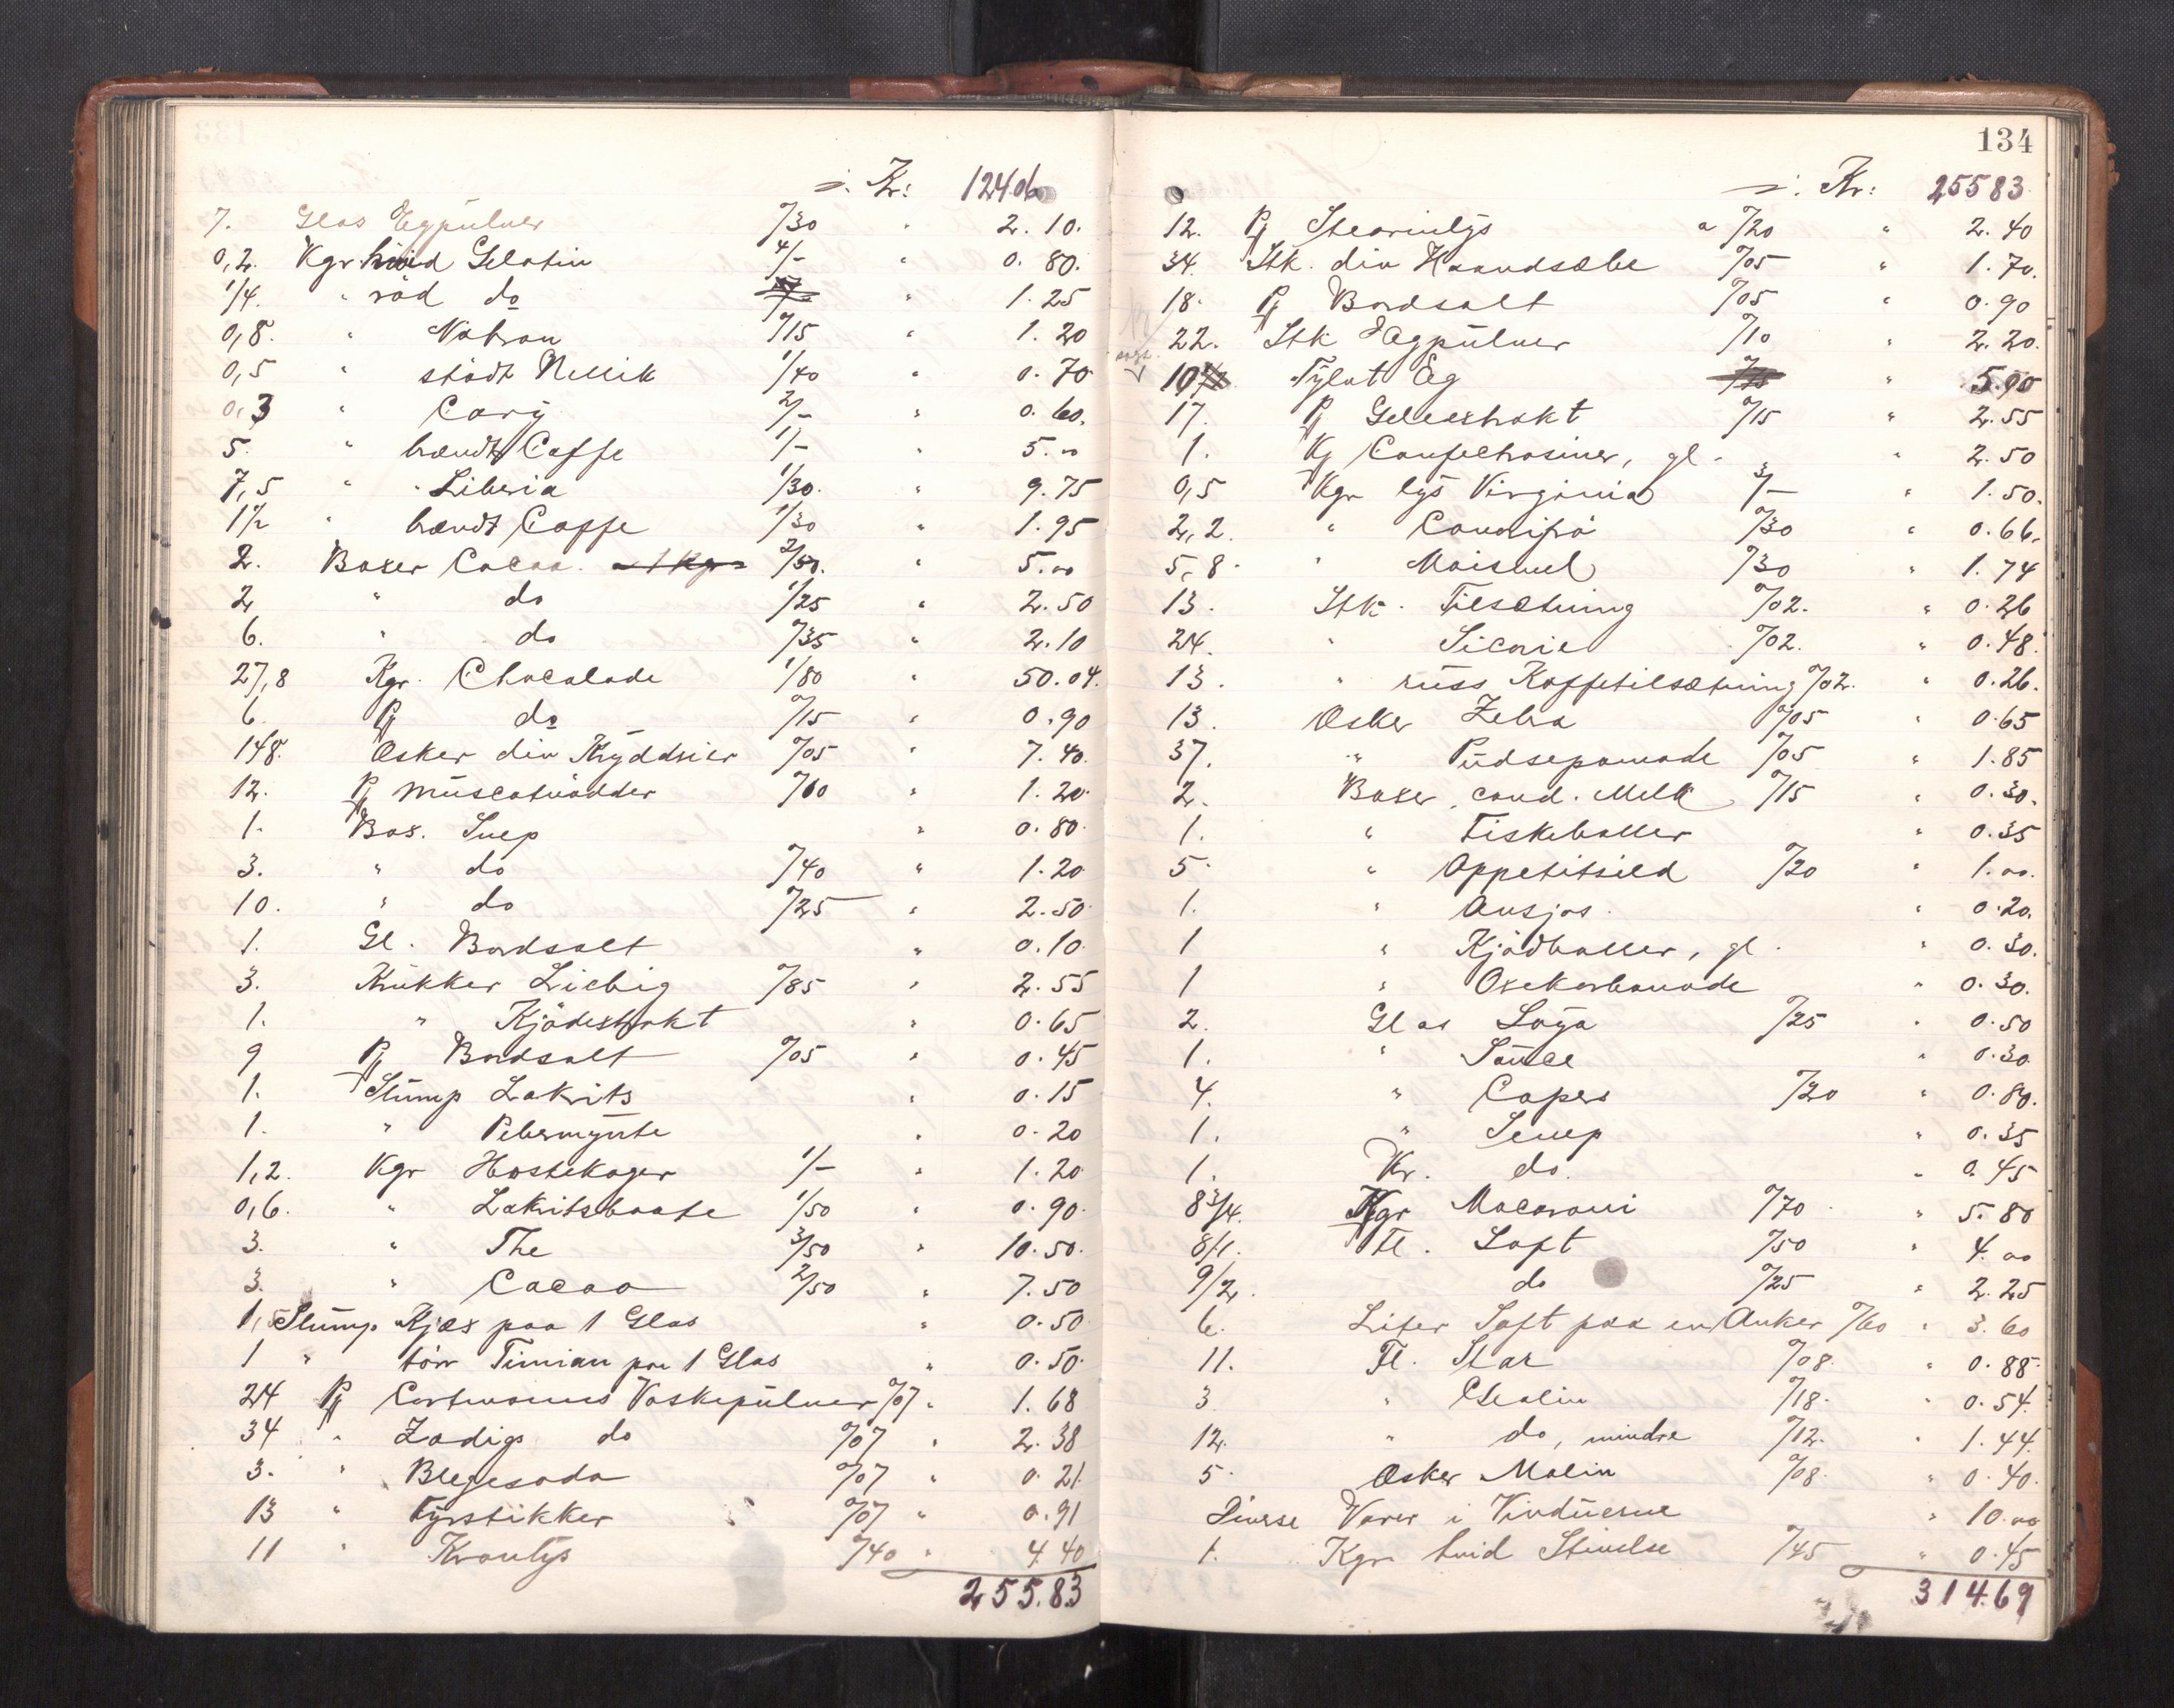 :/: Kr: 124.06
7. Glas Egpulver "/30 " 2.10.
0,2. Kgr hvid Gelatin 4/- " 0.80.
1/4. " röd do " 1.25
0,8. " Natron "/15 " 1.20
0,5 " stödt Nellik 1/40 " 0.70
0,3 " Cary 2/- " 0.60.
5. " brændt Caffe 1/- " 5.00
7,5 " " Liberia 1/30. " 9.75
1 1/2 " brændt Caffe 1/30 " 1.95
2. Boxer Cacao. a 1 Kgr 2/50. " 5.00
2 " do 1/25 " 2.50
6. " do "/35 " 2.10
27,8 Kgr. Chocolade 1/80 " 50.04.
6 Pj do "/15 " 0.90
148. Æsker div Krydderier "/05 " 7.40.
12. Pj Muscatnödder "/10 " 1.20.
1. Box. Snep " 0.80.
3. " do "/40 " 1.20
10. " do "/25 " 2.50.
1. Gl. Bordsalt " 0.10.
3. Krukker Liebig "/85 " 2.55
1. " Kjödextrakt " 0.65
9 Pj Bordsalt "/05 " 0.45
1. Slump Lakrits " 0.15
1. " Pebermynte " 0.20
1,2. Kgr Hostekager 1/- " 1.20
0,6. " Lakritsbaate 1/50 " 0.90.
3. " The 3/50 " 10.50.
3. " Cacao 2/50 " 7.50
1, Slump Kjæx paa 1 Glas " 0.50
1 " törr Timian paa 1 Glas " 0.50.
24 Pj Vaskepulver "/07 " 1.68
34 " Zadigs do "/07 " 2.38
3. " Blegesoda "/07 " 0.21
13 " Fyrstikker "/07 " 0.91
11 " Kronlys "/40 " 4.40
255.83
134
:/: Kr: 255 83
12. Pj Stearinlys a "/20 " 2.40
34. Stk. div Haandsæbe "/05 " 1.70.
18. Pj Bordsalt "/05 " 0.90
22. Stk Eegpulver "/10 " 2.20.
10 Sylat Eg " 5.00
17. Pj Geleextrakt "/15 " 2.55
1. Kj Confektrosiner, gl. " 2.50
0,5 Kgr lys Virginia 3/- " 1.50.
2,2. " "/30 " 0.66.
5,8. " Maismel "/30 " 1.74
13. Stk. Tilsætning "/02. " 0.26
24. " Sicorie "/02. " 0.48.
13. " russ Kaffetilsætning "/02. " 0.26.
13. Æsker Zebra "/05 " 0.65
37. " Pudsepomade "/05 " 1.85
2. Boxer cond. Melk "/15 " 0.30.
1. " Fiskeboller " 0.35
5. " Appetitsild "/20 " 1.00.
1. " Ansjos. " 0.20.
1 " Kjödboller, gl. " 0.30.
1 " Oxekarbonade " 0.30.
2. Glas Soya "/25 " 0.50
1. " Sauce " 0.30
4. " Capers "/20 " 0.80.
1. " Senep " 0.35
1. Kr. do. " 0.45
8 3/4. Kgr Macaroni "/70 " 5.80
8/1. Fl. Saft "/50 " 4.00
9/2. do "/25 " 2.25
6. Liter Saft paa en Anker "/60 " 3.60
11. Fl. Star "/08. " 0.88.
3 " "/18. " 0.54.
12. " do, mindre "/12. " 1.44.
5. Æsker Malin "/08. " 0.40.
Diverse Varer i Vinduerne " 10.00
1. Kgr hvid Stivelse "/45 " 0.45
314.69